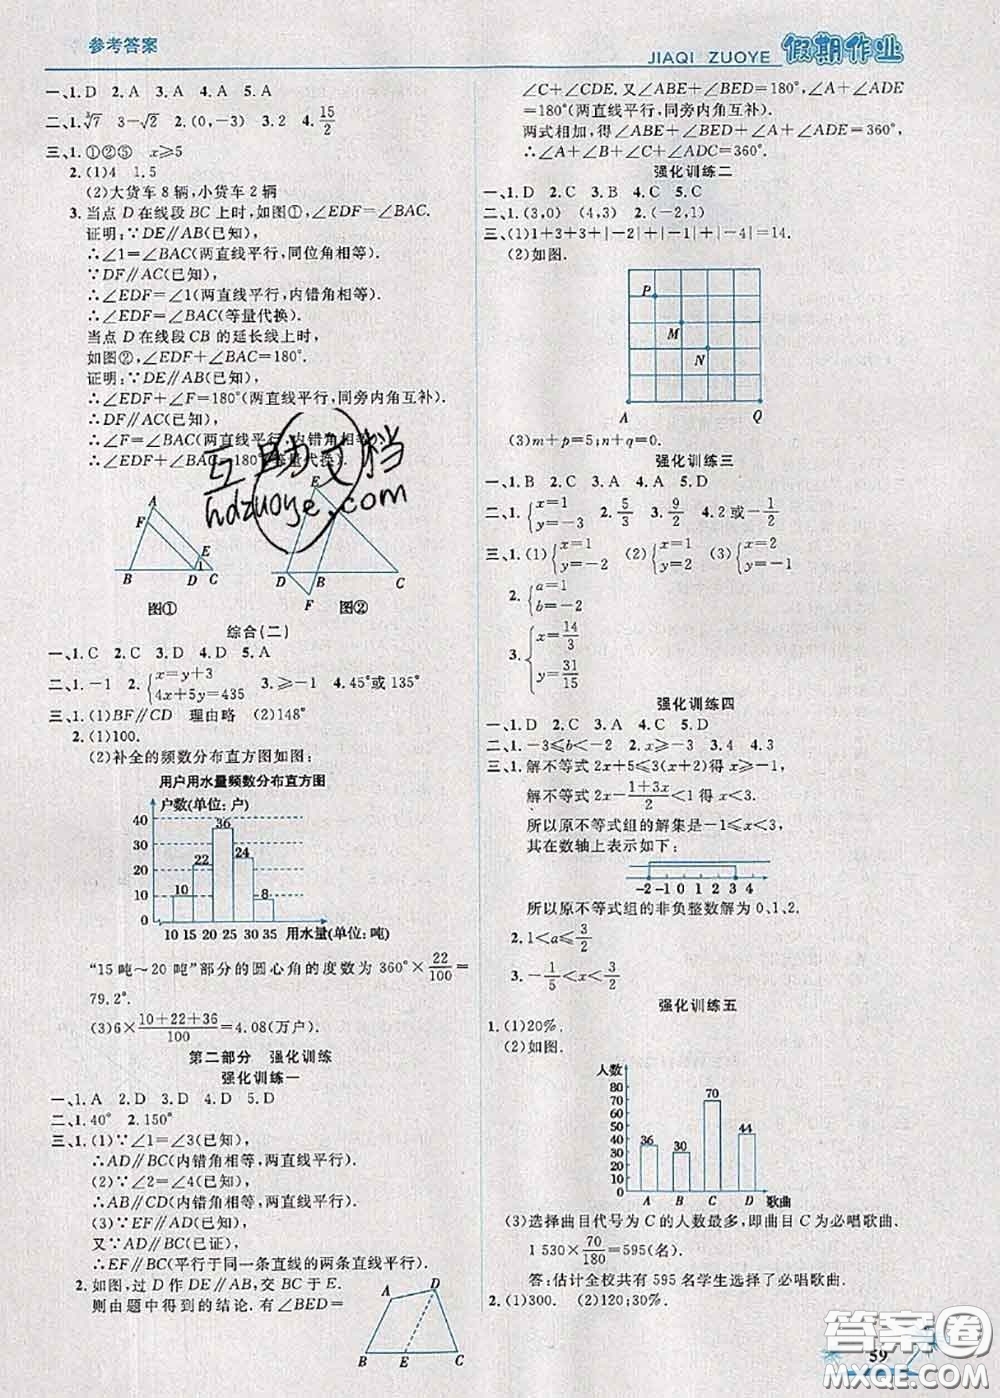 参考答案
JIAQI ZUOYE 假期作业
一、1. D 2. A 3. A 4. A 5. A
二、1. ∛7 3-√2 2. (0,-3) 3. 2 4. 15/2
三、1. ①②⑤ x≥5
2. (1)4 1.5
(2)大货车 8 辆,小货车 2 辆
3. 当点 D 在线段 BC 上时,如图①,∠EDF=∠BAC.
证明:∵DE∥AB(已知),
∴∠1=∠BAC(两直线平行,同位角相等).
∵DF∥AC(已知),
∴∠EDF=∠1(两直线平行,内错角相等).
∴∠EDF=∠BAC(等量代换).
当点 D 在线段 CB 的延长线上时,
如图②,∠EDF+∠BAC=180°.
证明:∵DE∥AB(已知),
∴∠EDF+∠F=180°(两直线平行,同旁内角互补).
∵DF∥AC(已知),
∴∠F=∠BAC(两直线平行,内错角相等).
∴∠EDF+∠BAC=180°(等量代换).
互助文档
hdzuoye.com
A F E B D 1 C
E A D B C F
图① 图②
综合(二)
一、1. C 2. C 3. D 4. D 5. A
二、1. -1 2. {x=y+3 4x+5y=435 3. ≥-1 4. 45°或 135°
三、1. (1)BF∥CD 理由略 (2)148°
2. (1)100.
(2)补全的频数分布直方图如图:
用户用水量频数分布直方图
户数(单位:户)
40 30 20 10 0
10 22 36 24 8
10 15 20 25 30 35 用水量(单位:吨)
“15 吨～20 吨”部分的圆心角的度数为 360°×22/100=
79.2°.
(3)6×(10+22+36)/100=4.08(万户).
第二部分 强化训练
强化训练一
一、1. A 2. D 3. D 4. D 5. D
二、1. 40° 2. 150°
三、1. (1)∵∠1=∠3(已知),
∴AD∥BC(内错角相等,两直线平行).
(2)∵∠2=∠4(已知),
∴AB∥CD(内错角相等,两直线平行).
(3)∵EF∥AD(已知),
又∵AD∥BC(已证),
∴EF∥BC(平行于同一条直线的两条直线平行).
2. 如图,过 D 作 DE∥AB,交 BC 于 E.
则由题中得到的结论. 有∠BED=
A D B E C
∠C+∠CDE. 又∠ABE+∠BED=180°,∠A+∠ADE
=180°(两直线平行,同旁内角互补).
两式相加,得∠ABE+∠BED+∠A+∠ADE=360°,
∴∠A+∠B+∠C+∠ADC=360°.
强化训练二
一、1. D 2. C 3. B 4. C 5. C
二、1. (3,0) (4,3) 2. (-2,1)
三、(1)1+3+3+|-2|+|-1|+|-4|=14.
(2)如图.
P M N A Q
(3)m+p=5;n+q=0.
强化训练三
一、1. D 2. B 3. C 4. A 5. D
二、1. {x=1 y=-3 2. 5/3 3. 9/2 4. 2 或-1/2
三、1. (1){x=1 y=-2 (2){x=1 y=2 (3){x=2 y=-1
2. {a=1 b=-2
3. {x=14/3 y=31/15
强化训练四
一、1. D 2. C 3. A 4. C 5. D
二、1. -3≤b<-2 2. k>-3 3. 4 4. 3
三、1. 解不等式 2x+5≤3(x+2)得 x≥-1,
解不等式 2x-(1+3x)/2<1 得 x<3.
所以原不等式组的解集是-1≤x<3,
其在数轴上表示如下:
-2 -1 0 1 2 3 4
所以原不等式组的非负整数解为 0、1、2.
2. 1<a≤3/2
3. -1/5<x<3/2
强化训练五
1. (1)20%.
(2)如图.
人数
80 70 60 50 40 30 20 10 0
36 30 70 44
A B C D 歌曲
(3)选择曲目代号为 C 的人数最多,即曲目 C 为必唱歌曲.
1 530×70/180=595(名).
答:估计全校共有 595 名学生选择了必唱歌曲.
2. (1)300. (2)120;30%.
59
答案圈
MXQE.COM